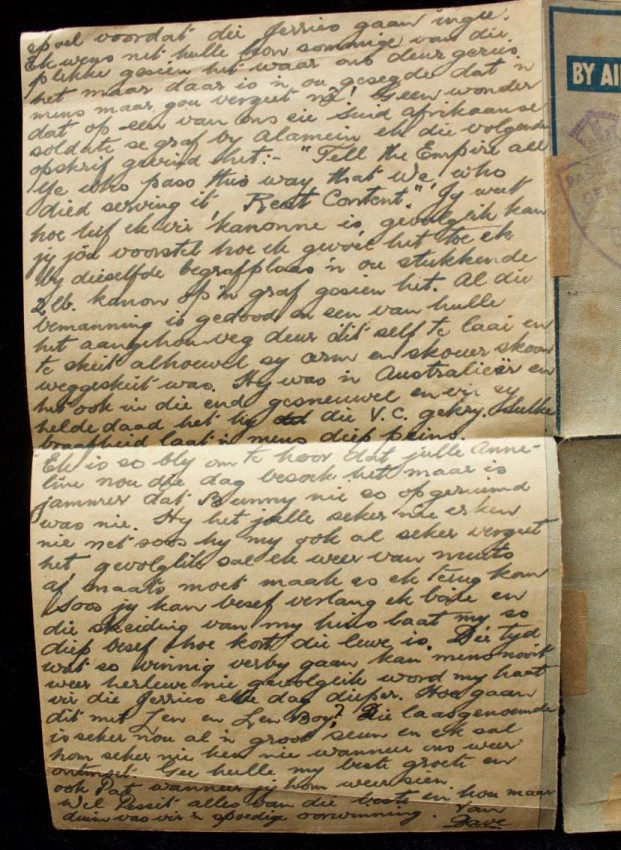 spoel voordat die Jerries gaan ingee.
Ek wens net hulle kon sommige van die
plekke gesien het waar ons deur gereis
het maar daar is 'n ou gesegde dat 'n
mens maar gou vergeet nê! Geen wonder
dat op een van ons eie Suid Afrikaanse
soldate se graf by Alamein ek die volgende
opskrif gevind het:- "Tell the Empire all
Ye who pass this way that we, who
died serving it Rest Content." Jy weet
hoe lief ek vir 'kanonne is, gevolglik kan
jy jou voorstel hoe ek gevoel het toe ek
by dieselfde begrafplaas 'n ou stukkende
2 lb. kanon op 'n graf gesien het. Al die
bemanning is gedood en een van hulle
het aangehou veg deur dit self te laai en
te skiet alhoewel sy arm en skouer skoon
weggeskiet was. Hy was 'n Australiër en
het ook in die end gesneuwel en vir sy
heldedaad het hy die V.C. gekry. Hulle
braafheid laat 'n mens diep peins.
Ek is so bly om te hoor dat julle Anne-
line nou die dag besoek het maar is
jammer dat Bunny nie so opgeruimd
was nie. Hy het julle seker nie erken
nie net soos hy my ook al seker vergeet
het gevolglik sal ek weer van nuuts
af maats moet maak as ek terug kom
Soos jy kan besef verlang ek baie en
die skeiding van my huis laat my so
diep besef hoe kort die lewe is. Die tyd
wat so vinnig verby gaan kan mens nooit
weer herlewe nie gevolglik word my haat
vir die Jerries elke dag dieper. Hoe gaan
dit met Len en Len Boy? Die laasgenoemde
is seker nou al 'n groot seun en ek sal
hom seker nie ken nie wanneer ons weer
ontmoet. Gee hulle my beste groete en
ook Pat wanneer jy hom weer sien.
Wel Lessie alles van die beste en hou maar
duim vas vir 'n spoedige oorwinning. Van
Dave
BY AI